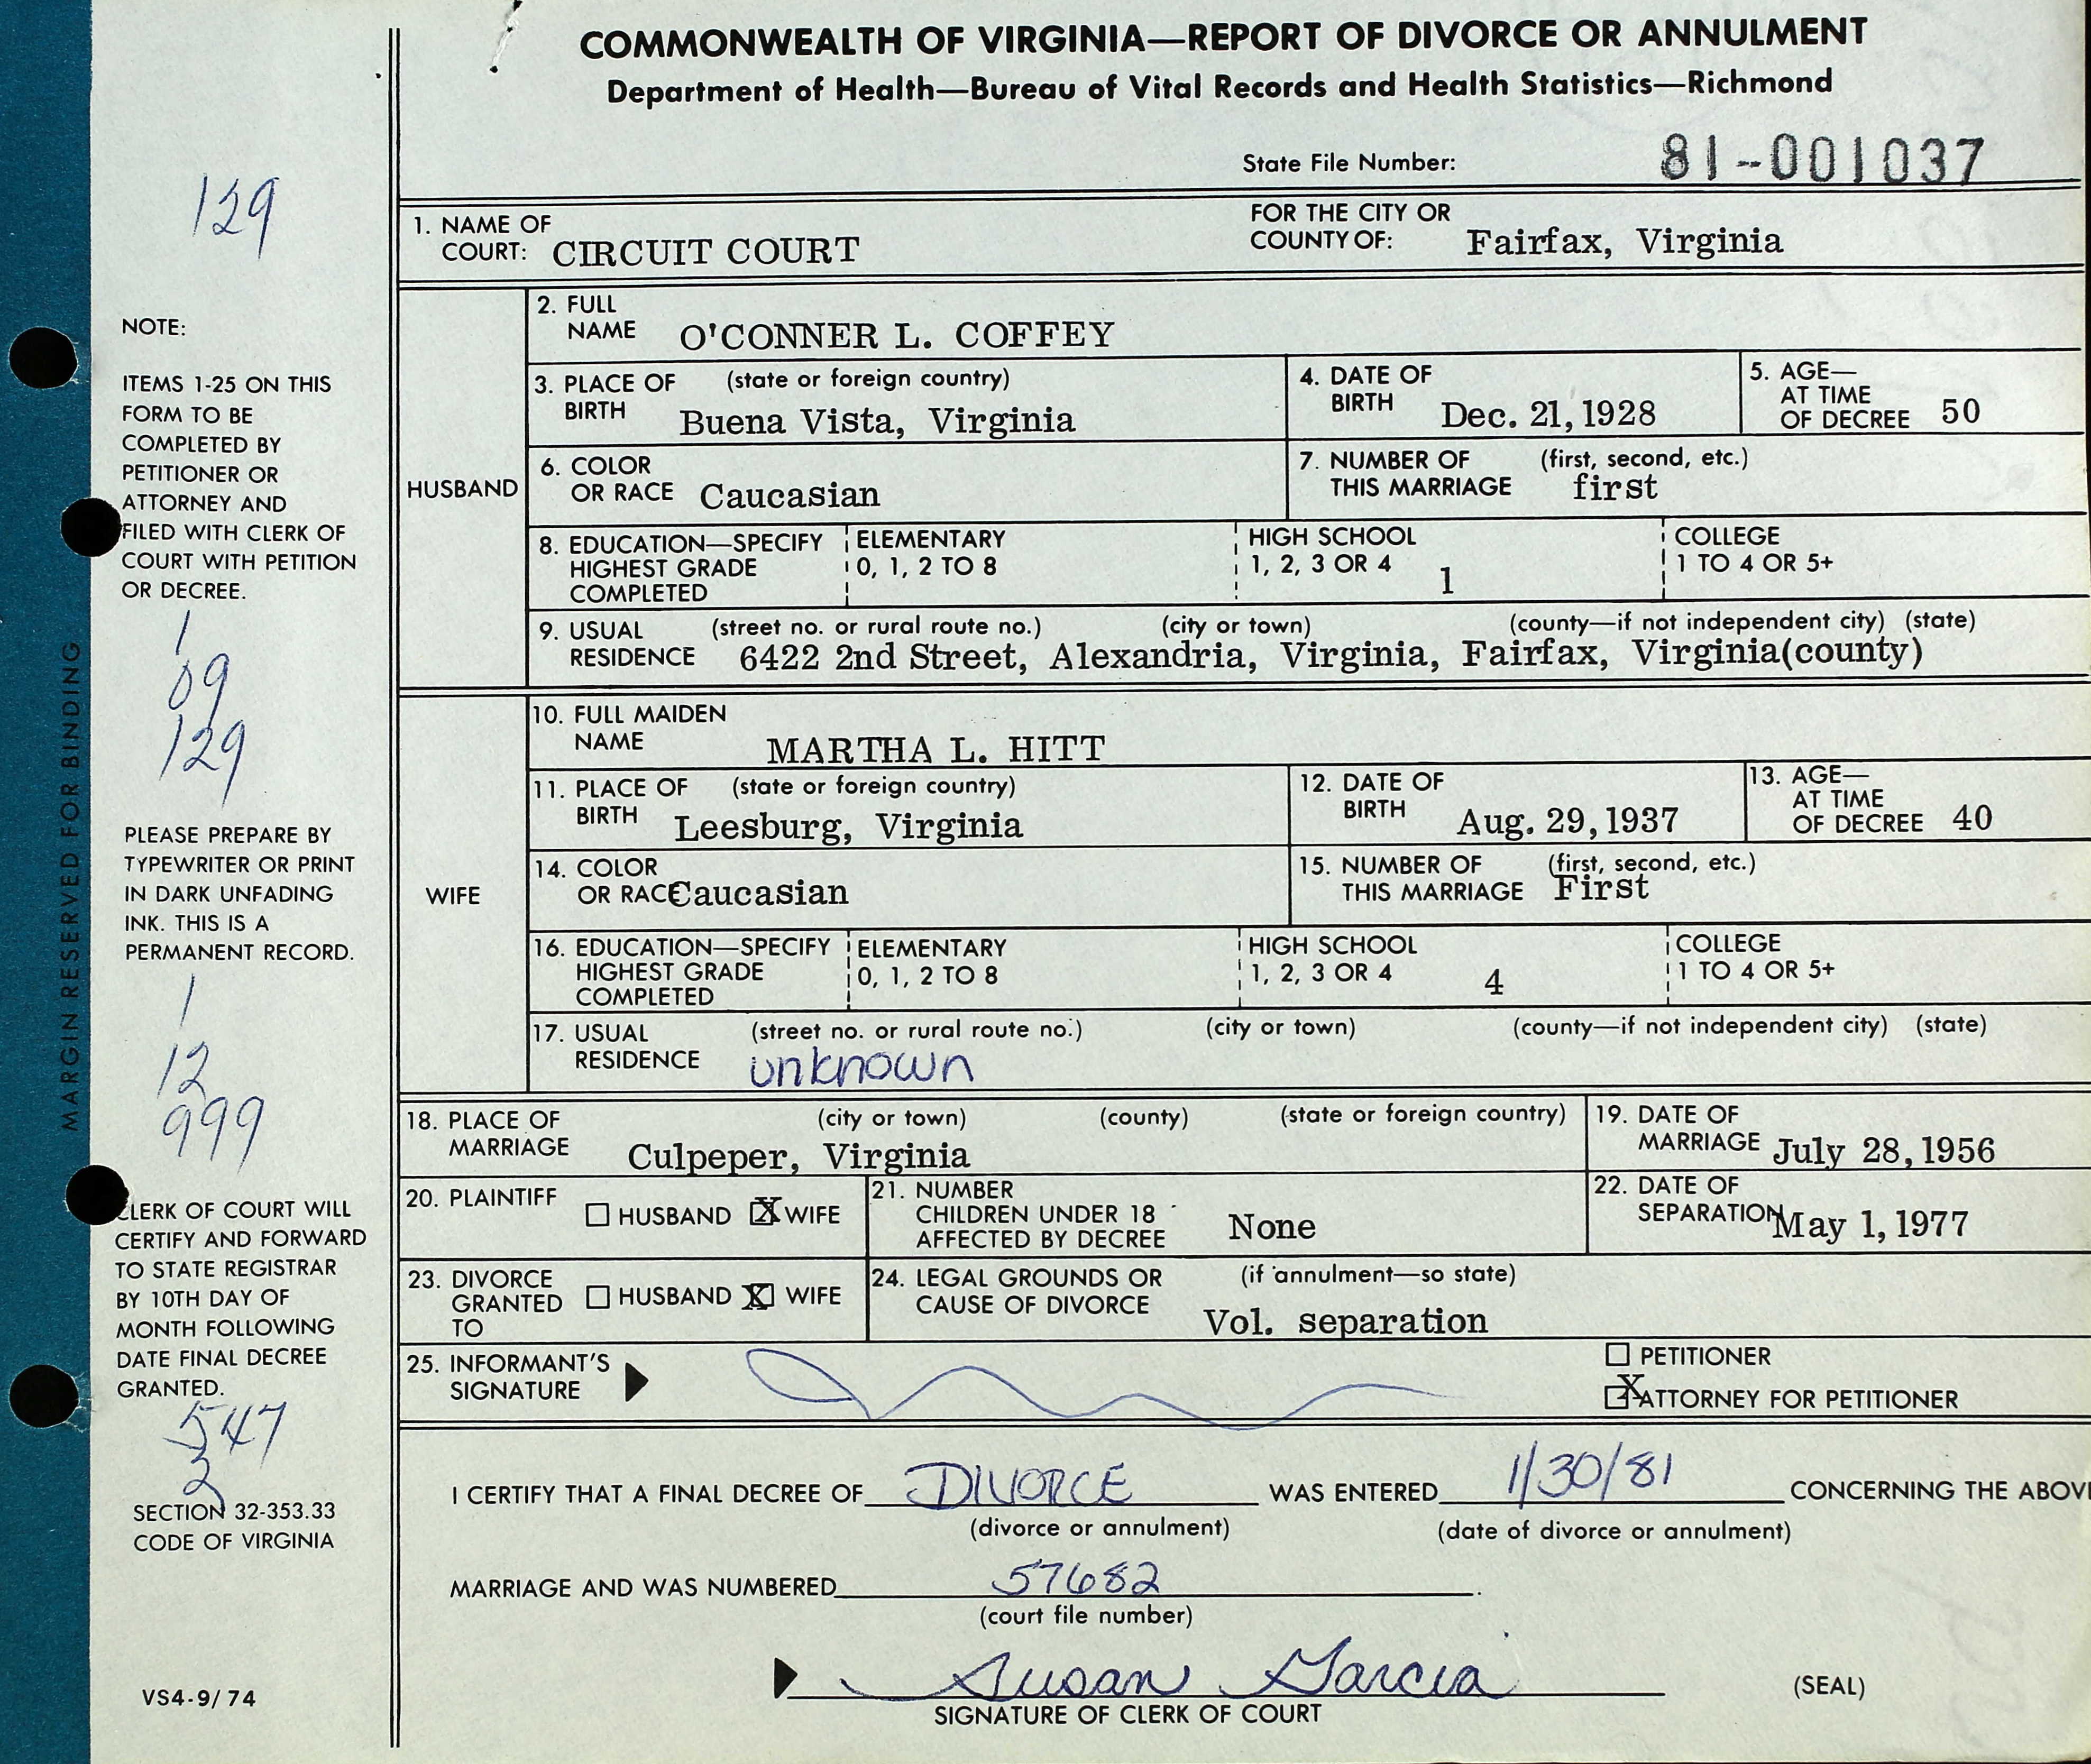 COMMONWEALTH OF VIRGINIA—REPORT OF DIVORCE OR ANNULMENT
Department of Health—Bureau of Vital Records and Health Statistics—Richmond
State File Number: 81-001037
129
1. NAME OF COURT: CIRCUIT COURT
FOR THE CITY OR COUNTY OF: Fairfax, Virginia
HUSBAND
2. FULL NAME O'CONNER L. COFFEY
3. PLACE OF BIRTH (state or foreign country) Buena Vista, Virginia
4. DATE OF BIRTH Dec. 21, 1928
5. AGE— AT TIME OF DECREE 50
6. COLOR OR RACE Caucasian
7. NUMBER OF THIS MARRIAGE (first, second, etc.) first
8. EDUCATION—SPECIFY HIGHEST GRADE COMPLETED
ELEMENTARY 0, 1, 2 TO 8
HIGH SCHOOL 1, 2, 3 OR 4 1
COLLEGE 1 TO 4 OR 5+
9. USUAL RESIDENCE (street no. or rural route no.) (city or town) (county—if not independent city) (state)
6422 2nd Street, Alexandria, Virginia, Fairfax, Virginia(county)
WIFE
10. FULL MAIDEN NAME MARTHA L. HITT
11. PLACE OF BIRTH (state or foreign country) Leesburg, Virginia
12. DATE OF BIRTH Aug. 29, 1937
13. AGE— AT TIME OF DECREE 40
14. COLOR OR RACE Caucasian
15. NUMBER OF THIS MARRIAGE (first, second, etc.) First
16. EDUCATION—SPECIFY HIGHEST GRADE COMPLETED
ELEMENTARY 0, 1, 2 TO 8
HIGH SCHOOL 1, 2, 3 OR 4 4
COLLEGE 1 TO 4 OR 5+
17. USUAL RESIDENCE (street no. or rural route no.) (city or town) (county—if not independent city) (state)
unknown
18. PLACE OF MARRIAGE (city or town) (county) (state or foreign country)
Culpeper, Virginia
19. DATE OF MARRIAGE July 28, 1956
20. PLAINTIFF ☐ HUSBAND ☒ WIFE
21. NUMBER CHILDREN UNDER 18 AFFECTED BY DECREE None
22. DATE OF SEPARATION May 1, 1977
23. DIVORCE GRANTED TO ☐ HUSBAND ☒ WIFE
24. LEGAL GROUNDS OR CAUSE OF DIVORCE (if annulment—so state) Vol. separation
25. INFORMANT'S SIGNATURE
☐ PETITIONER
☒ ATTORNEY FOR PETITIONER
I CERTIFY THAT A FINAL DECREE OF DIVORCE WAS ENTERED 1/30/81 CONCERNING THE ABOVE
(divorce or annulment) (date of divorce or annulment)
MARRIAGE AND WAS NUMBERED 57682.
(court file number)
Susan Garcia
SIGNATURE OF CLERK OF COURT
(SEAL)
NOTE:
ITEMS 1-25 ON THIS
FORM TO BE
COMPLETED BY
PETITIONER OR
ATTORNEY AND
FILED WITH CLERK OF
COURT WITH PETITION
OR DECREE.
1
09
129
PLEASE PREPARE BY
TYPEWRITER OR PRINT
IN DARK UNFADING
INK. THIS IS A
PERMANENT RECORD.
1
12
999
CLERK OF COURT WILL
CERTIFY AND FORWARD
TO STATE REGISTRAR
BY 10TH DAY OF
MONTH FOLLOWING
DATE FINAL DECREE
GRANTED.
547
2
SECTION 32-353.33
CODE OF VIRGINIA
VS4-9/74
MARGIN RESERVED FOR BINDING